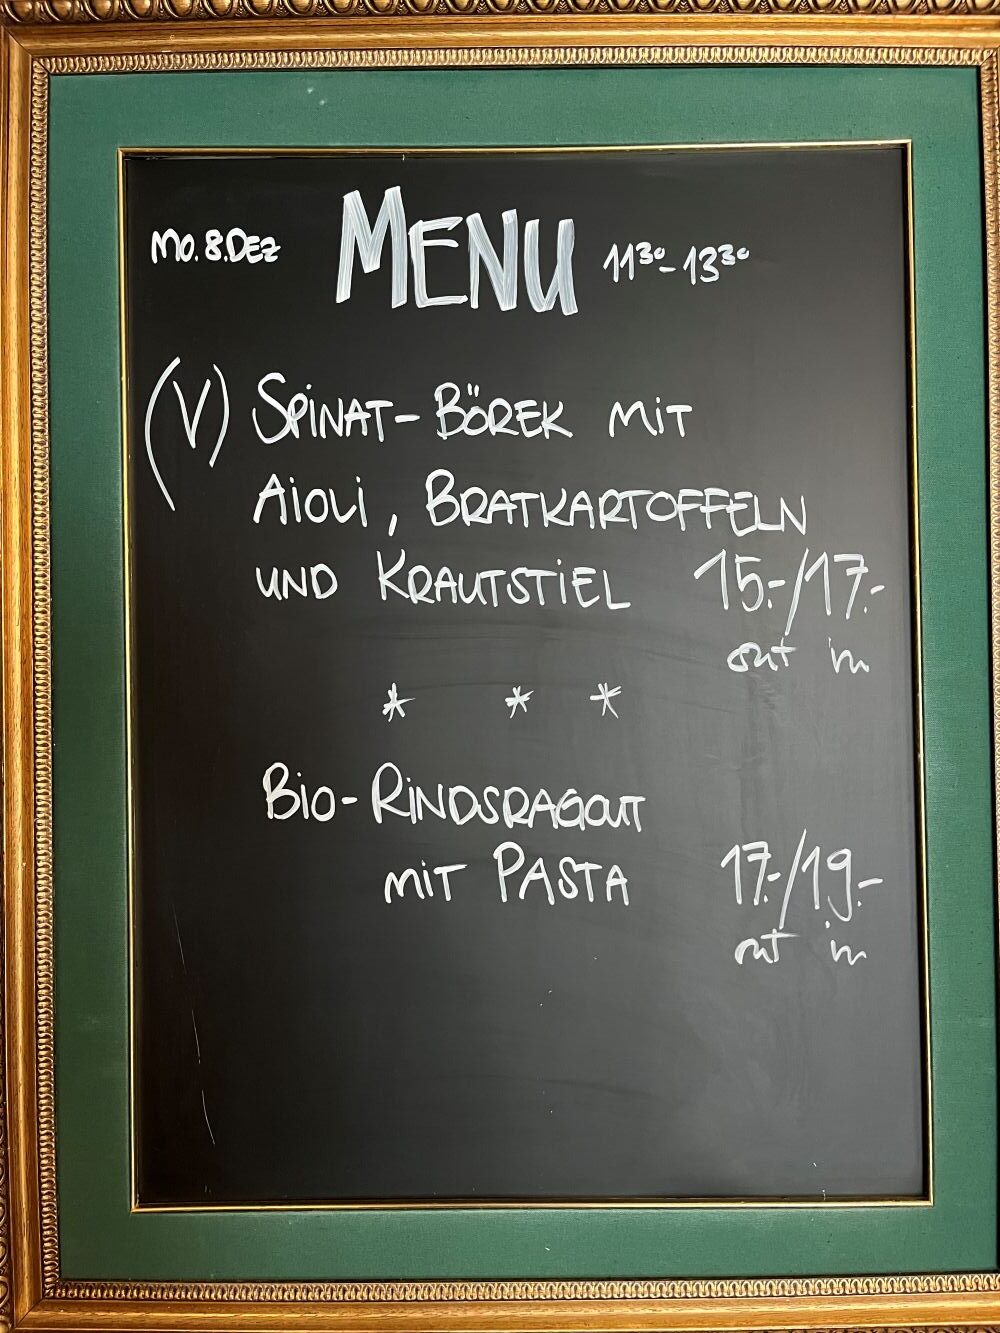 MO. 8. DEZ MENU 11³⁰ - 13³⁰
(V) SPINAT-BÖREK MIT
AIOLI, BRATKARTOFFELN
UND KRAUTSTIEL 15.-/17.-
out in
* * *
BIO-RINDSRAGOUT
MIT PASTA 17.-/19.-
out in